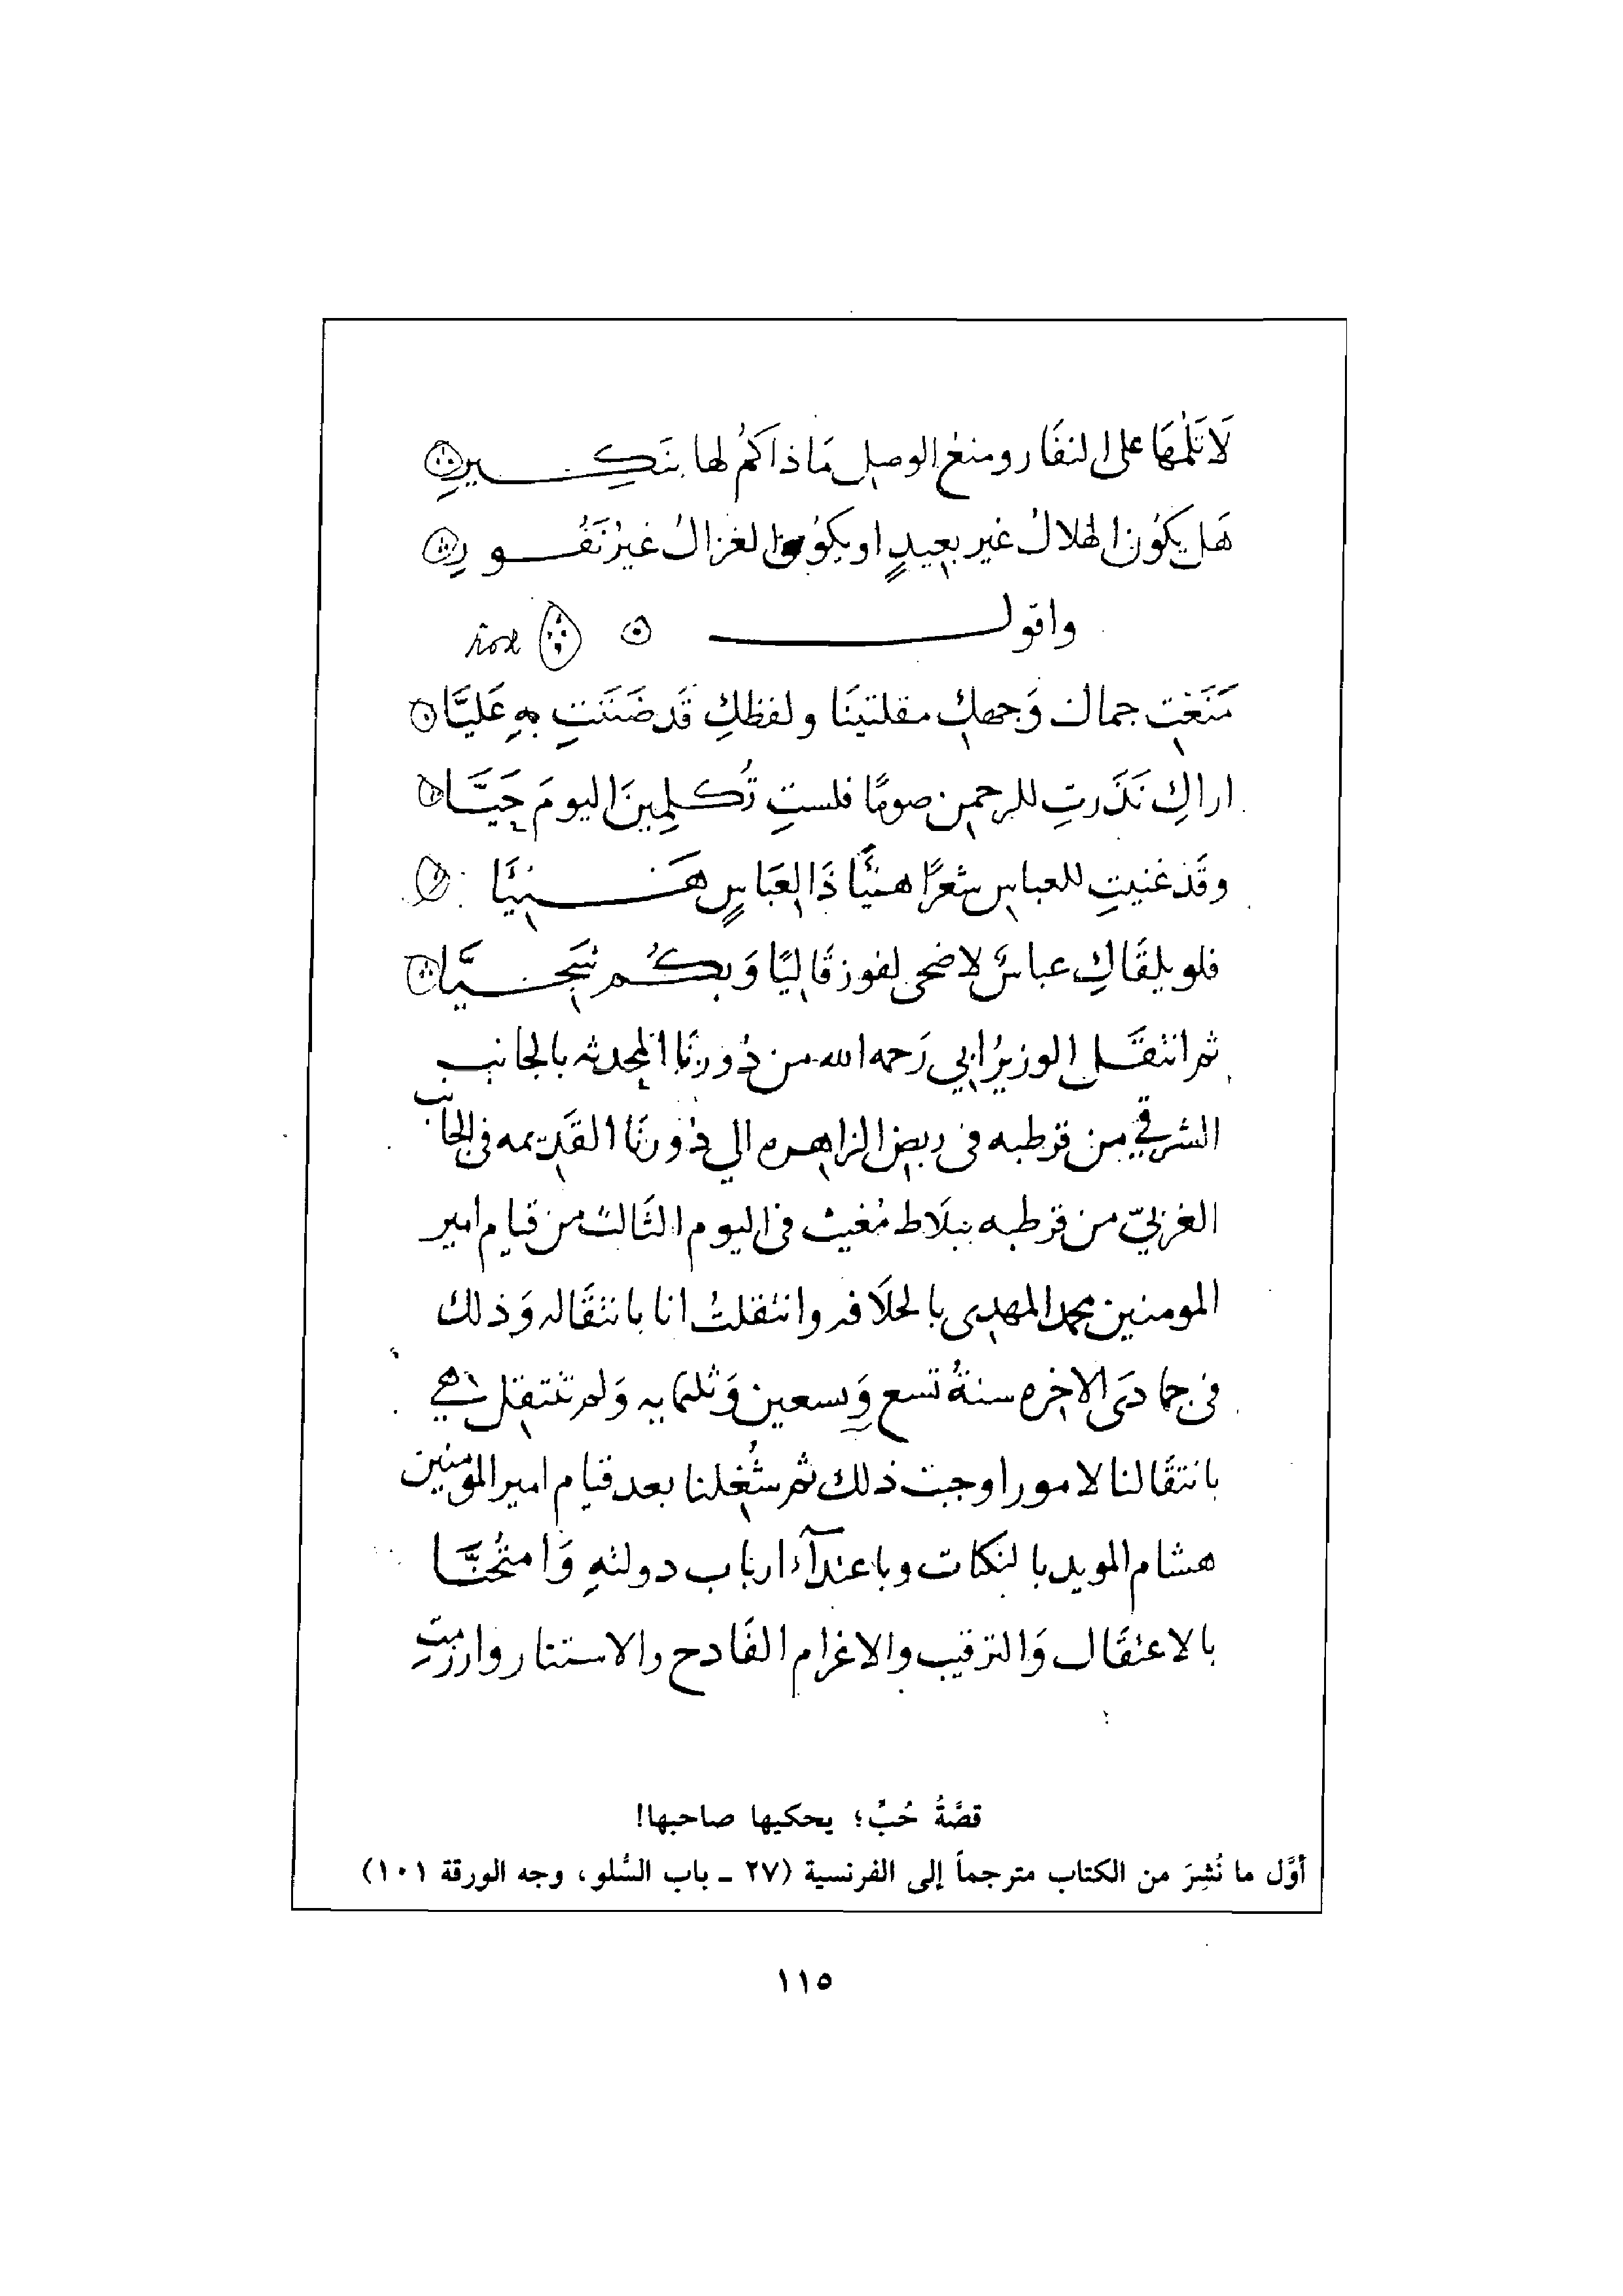 لَا تَلُمْهَا على النفَار ومنع الوصل مَا ذاكمُ لها بنَكِيرِ
هَل يكوُن الهلالُ غير بعيدٍ او يكوُن الغزالُ غيرُ نَفُورِ
واقول
مَنَعْتِ جمال وَجهكِ مقلتينَا ولفظكِ قَد ضَنَنتِ بهِ عَليَّا
اراكِ نَذَرتِ للرحمن صومًا فلستِ تُكلِمينَ اليومَ حَيَّا
وقَد غنيتِ للعباس شعرًا هنيًا ذَا لعَباسٍ هَنِيئَا
فلو يلقَاكِ عباسٌ لاضحى لفوز قَاليًا وَبكُم شَجيَّا
ثم انتقَل الوزيرُ ابي رَحمه الله من دُورنَا المحدثه بالجانب
الشرقي من قرطبه فى ربض الزاهره الي دُورنَا القَديمه فى الجانب
الغربيّ من قرطبه ببلَاط مُغيث فى اليوم الثَالث من قيام امير
المومنين محمد المهدى بالخلَافه وانتقلتُ انا بانتقَاله وَذلك
فى جمادَى الاخره سنةُ تسع وَتسعين وَثلثمايه وَلم تنتقل هي
بانتقَالنا لامور اوجبت ذلك ثم شُغلنا بعد قيام امير المومنين
هشام المويد بالنكبات وباعتدآء ارباب دولته وَامتُحنَّا
بالاعتقَال وَالترقيب والاغرام الفَادح والاستتار وارزمت
قصَّةُ حُبٍّ؛ يحكيها صاحبها!
أوَّل ما نُشِرَ من الكتاب مترجماً إلى الفرنسية (٢٧ ـ باب السُّلو، وجه الورقة ١٠١)
١١٥